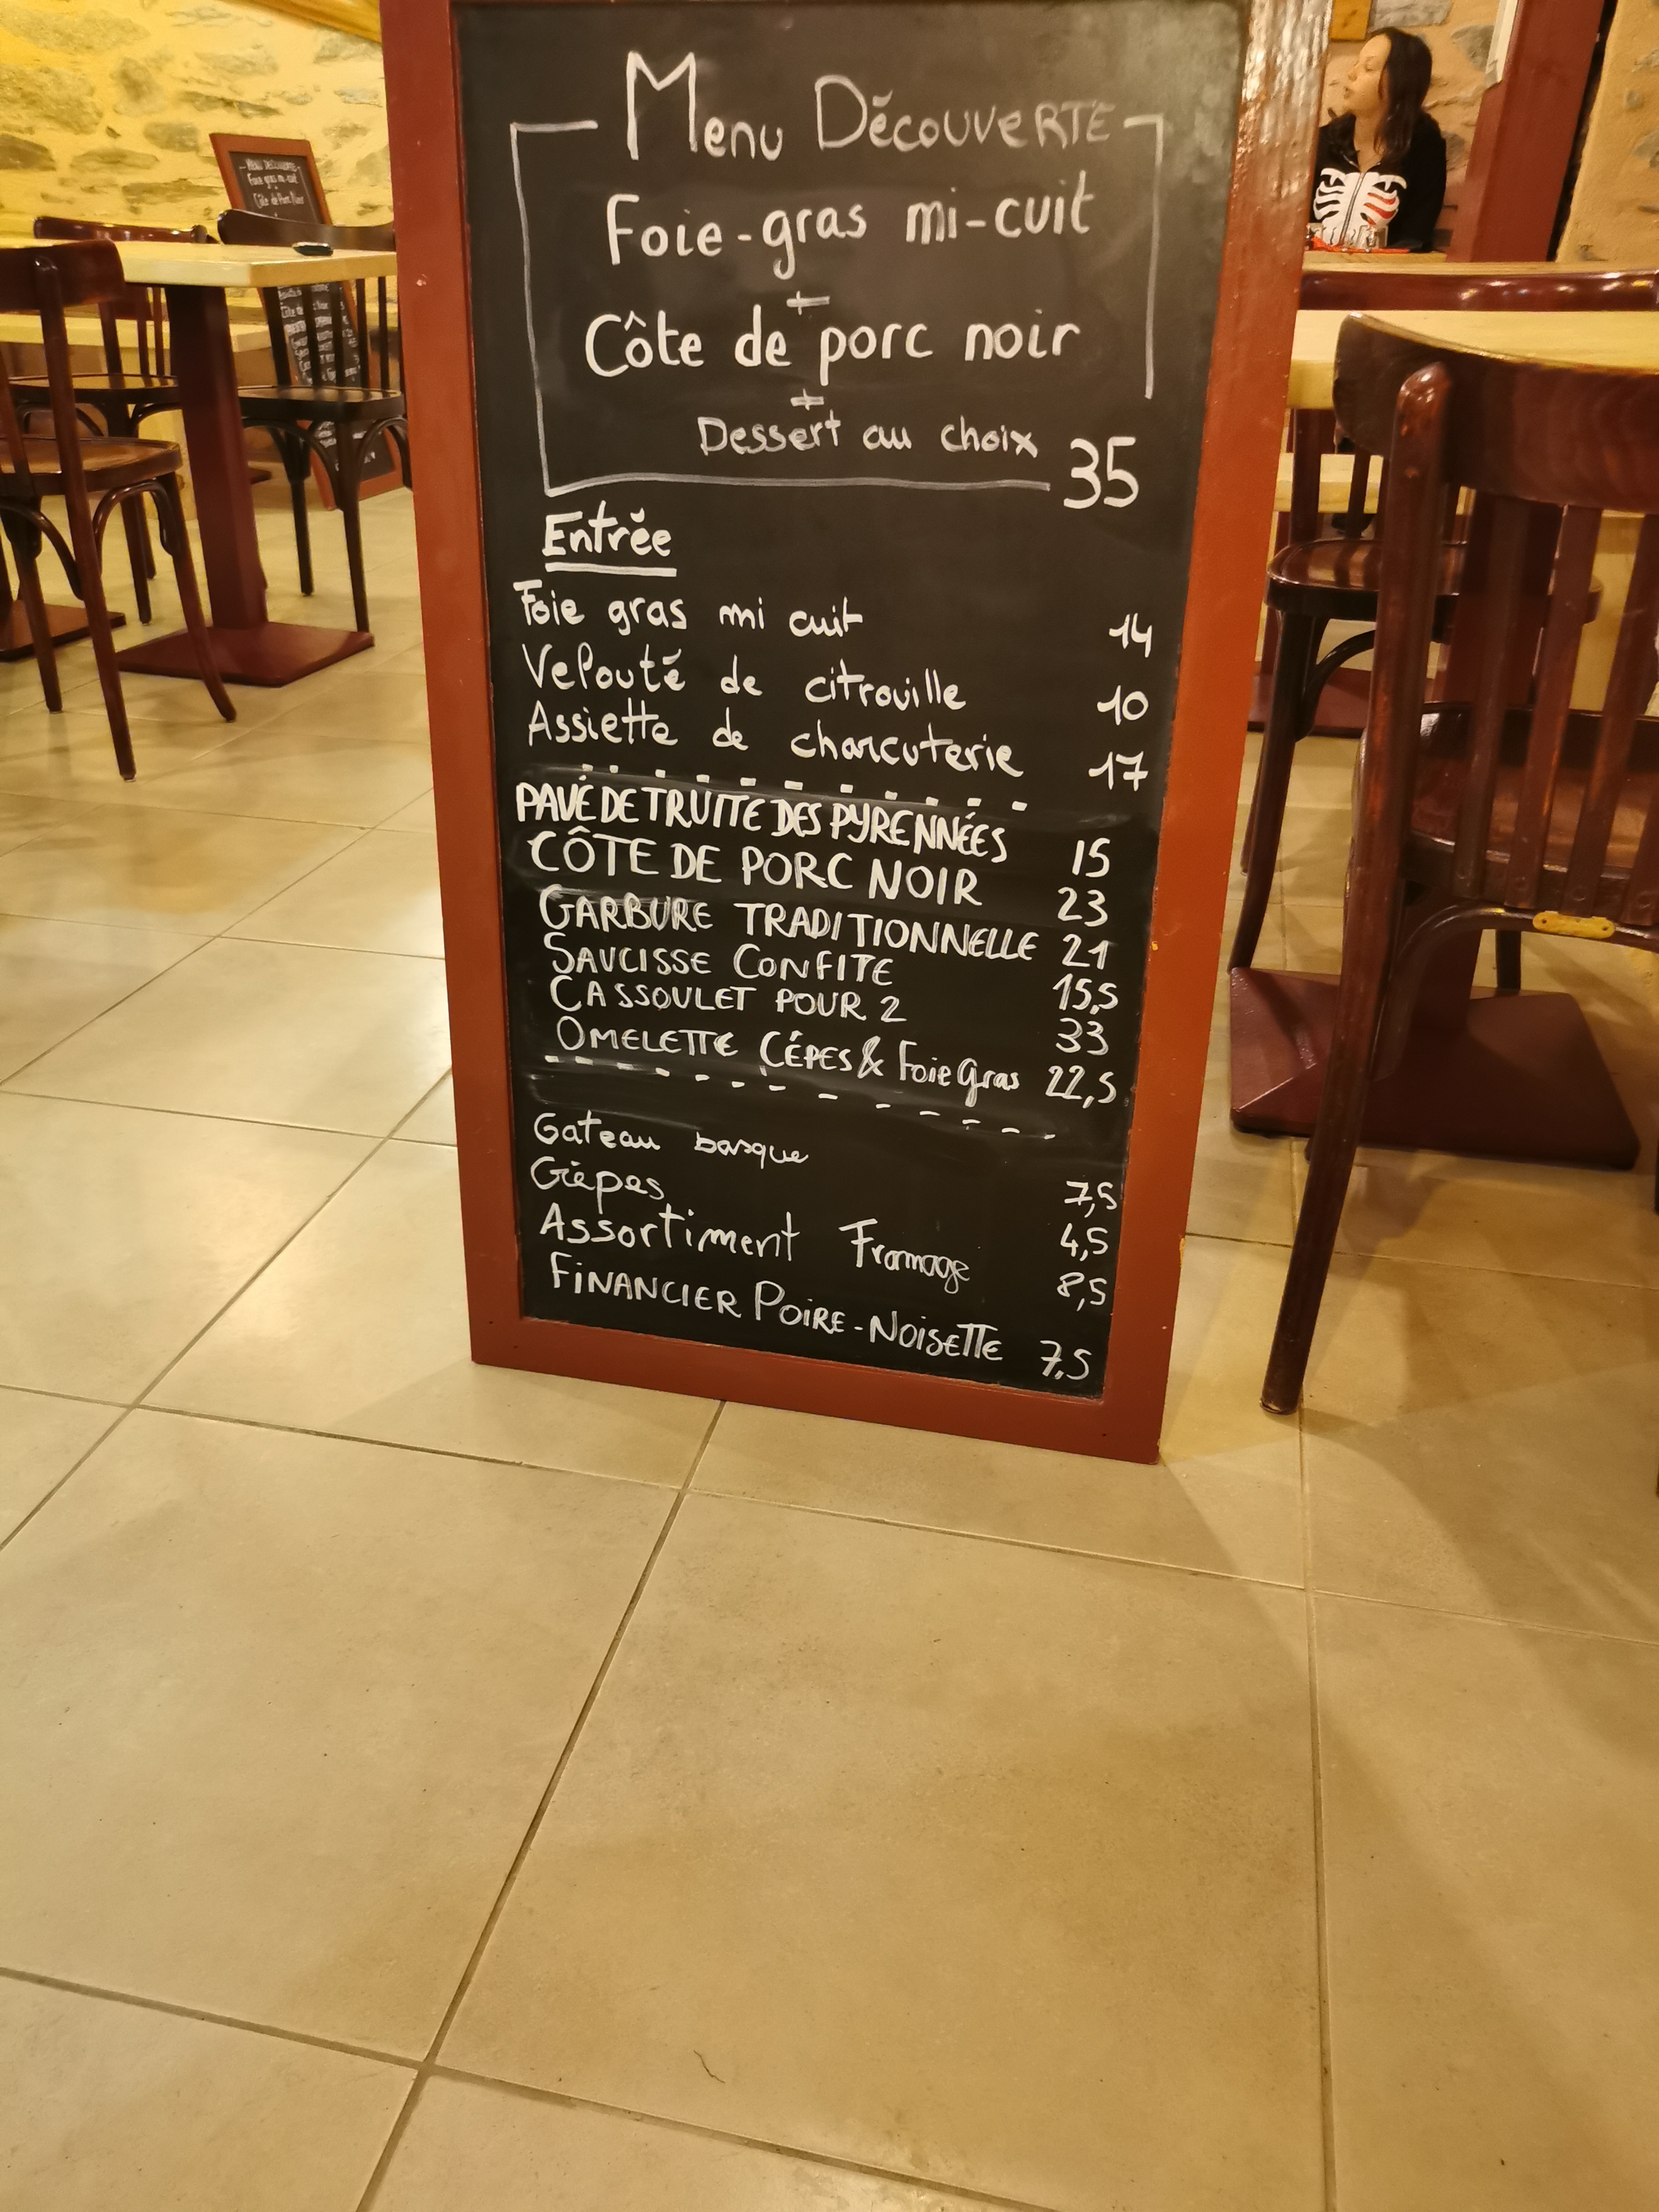 Menu Découverte
Foie-gras mi-cuit
+
Côte de porc noir
+
Dessert au choix 35
Entrée
Foie gras mi cuit 14
Velouté de citrouille 10
Assiette de charcuterie 17
PAVÉ DE TRUITE DES PYRENNÉES 15
CÔTE DE PORC NOIR 23
GARBURE TRADITIONNELLE 21
SAUCISSE CONFITE 15,5
CASSOULET POUR 2 33
OMELETTE CÉPES & Foie Gras 22,5
Gateau basque 7,5
Crêpes 4,5
Assortiment Fromage 8,5
FINANCIER POIRE-NOISETTE 7,5
MENU DÉCOUVERTE
Foie gras mi-cuit
Côte de Porc Noir